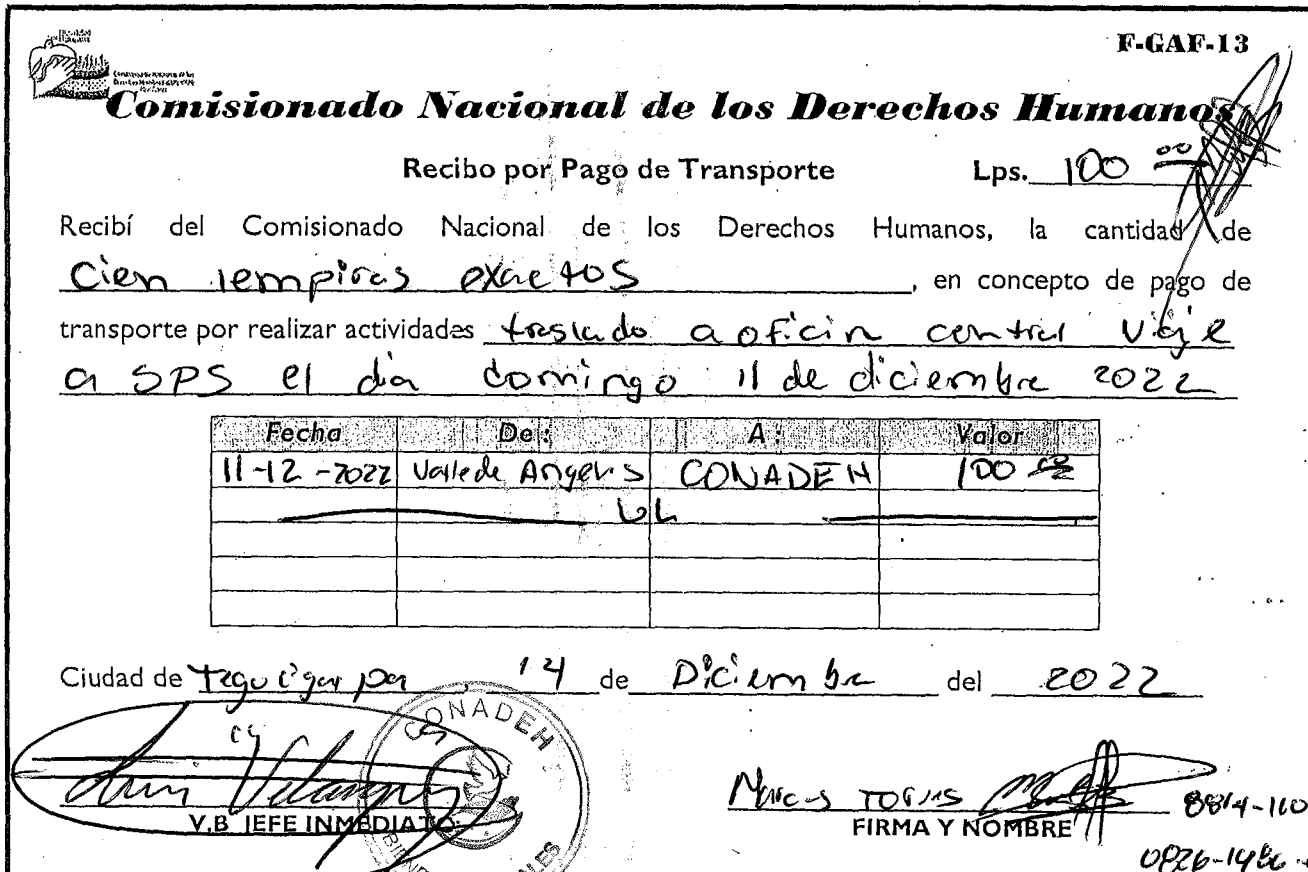 F-GAF-13
Comisionado Nacional de los Derechos Humanos
Recibo por Pago de Transporte Lps. 100 00
Recibí del Comisionado Nacional de los Derechos Humanos, la cantidad de
Cien lempiras exactos, en concepto de pago de
transporte por realizar actividades traslado a oficin central viaje
a SPS el dia domingo 11 de diciembre 2022
Fecha De: A: Valor
11-12-2022 Valle de Angeles CONADEH 100
Ciudad de Tegucigalpa, 14 de Diciembre del 2022
CONADEH
Luis Velasquez
V.B JEFE INMEDIATO
Marcos Torres 8814-110
FIRMA Y NOMBRE
BIENES